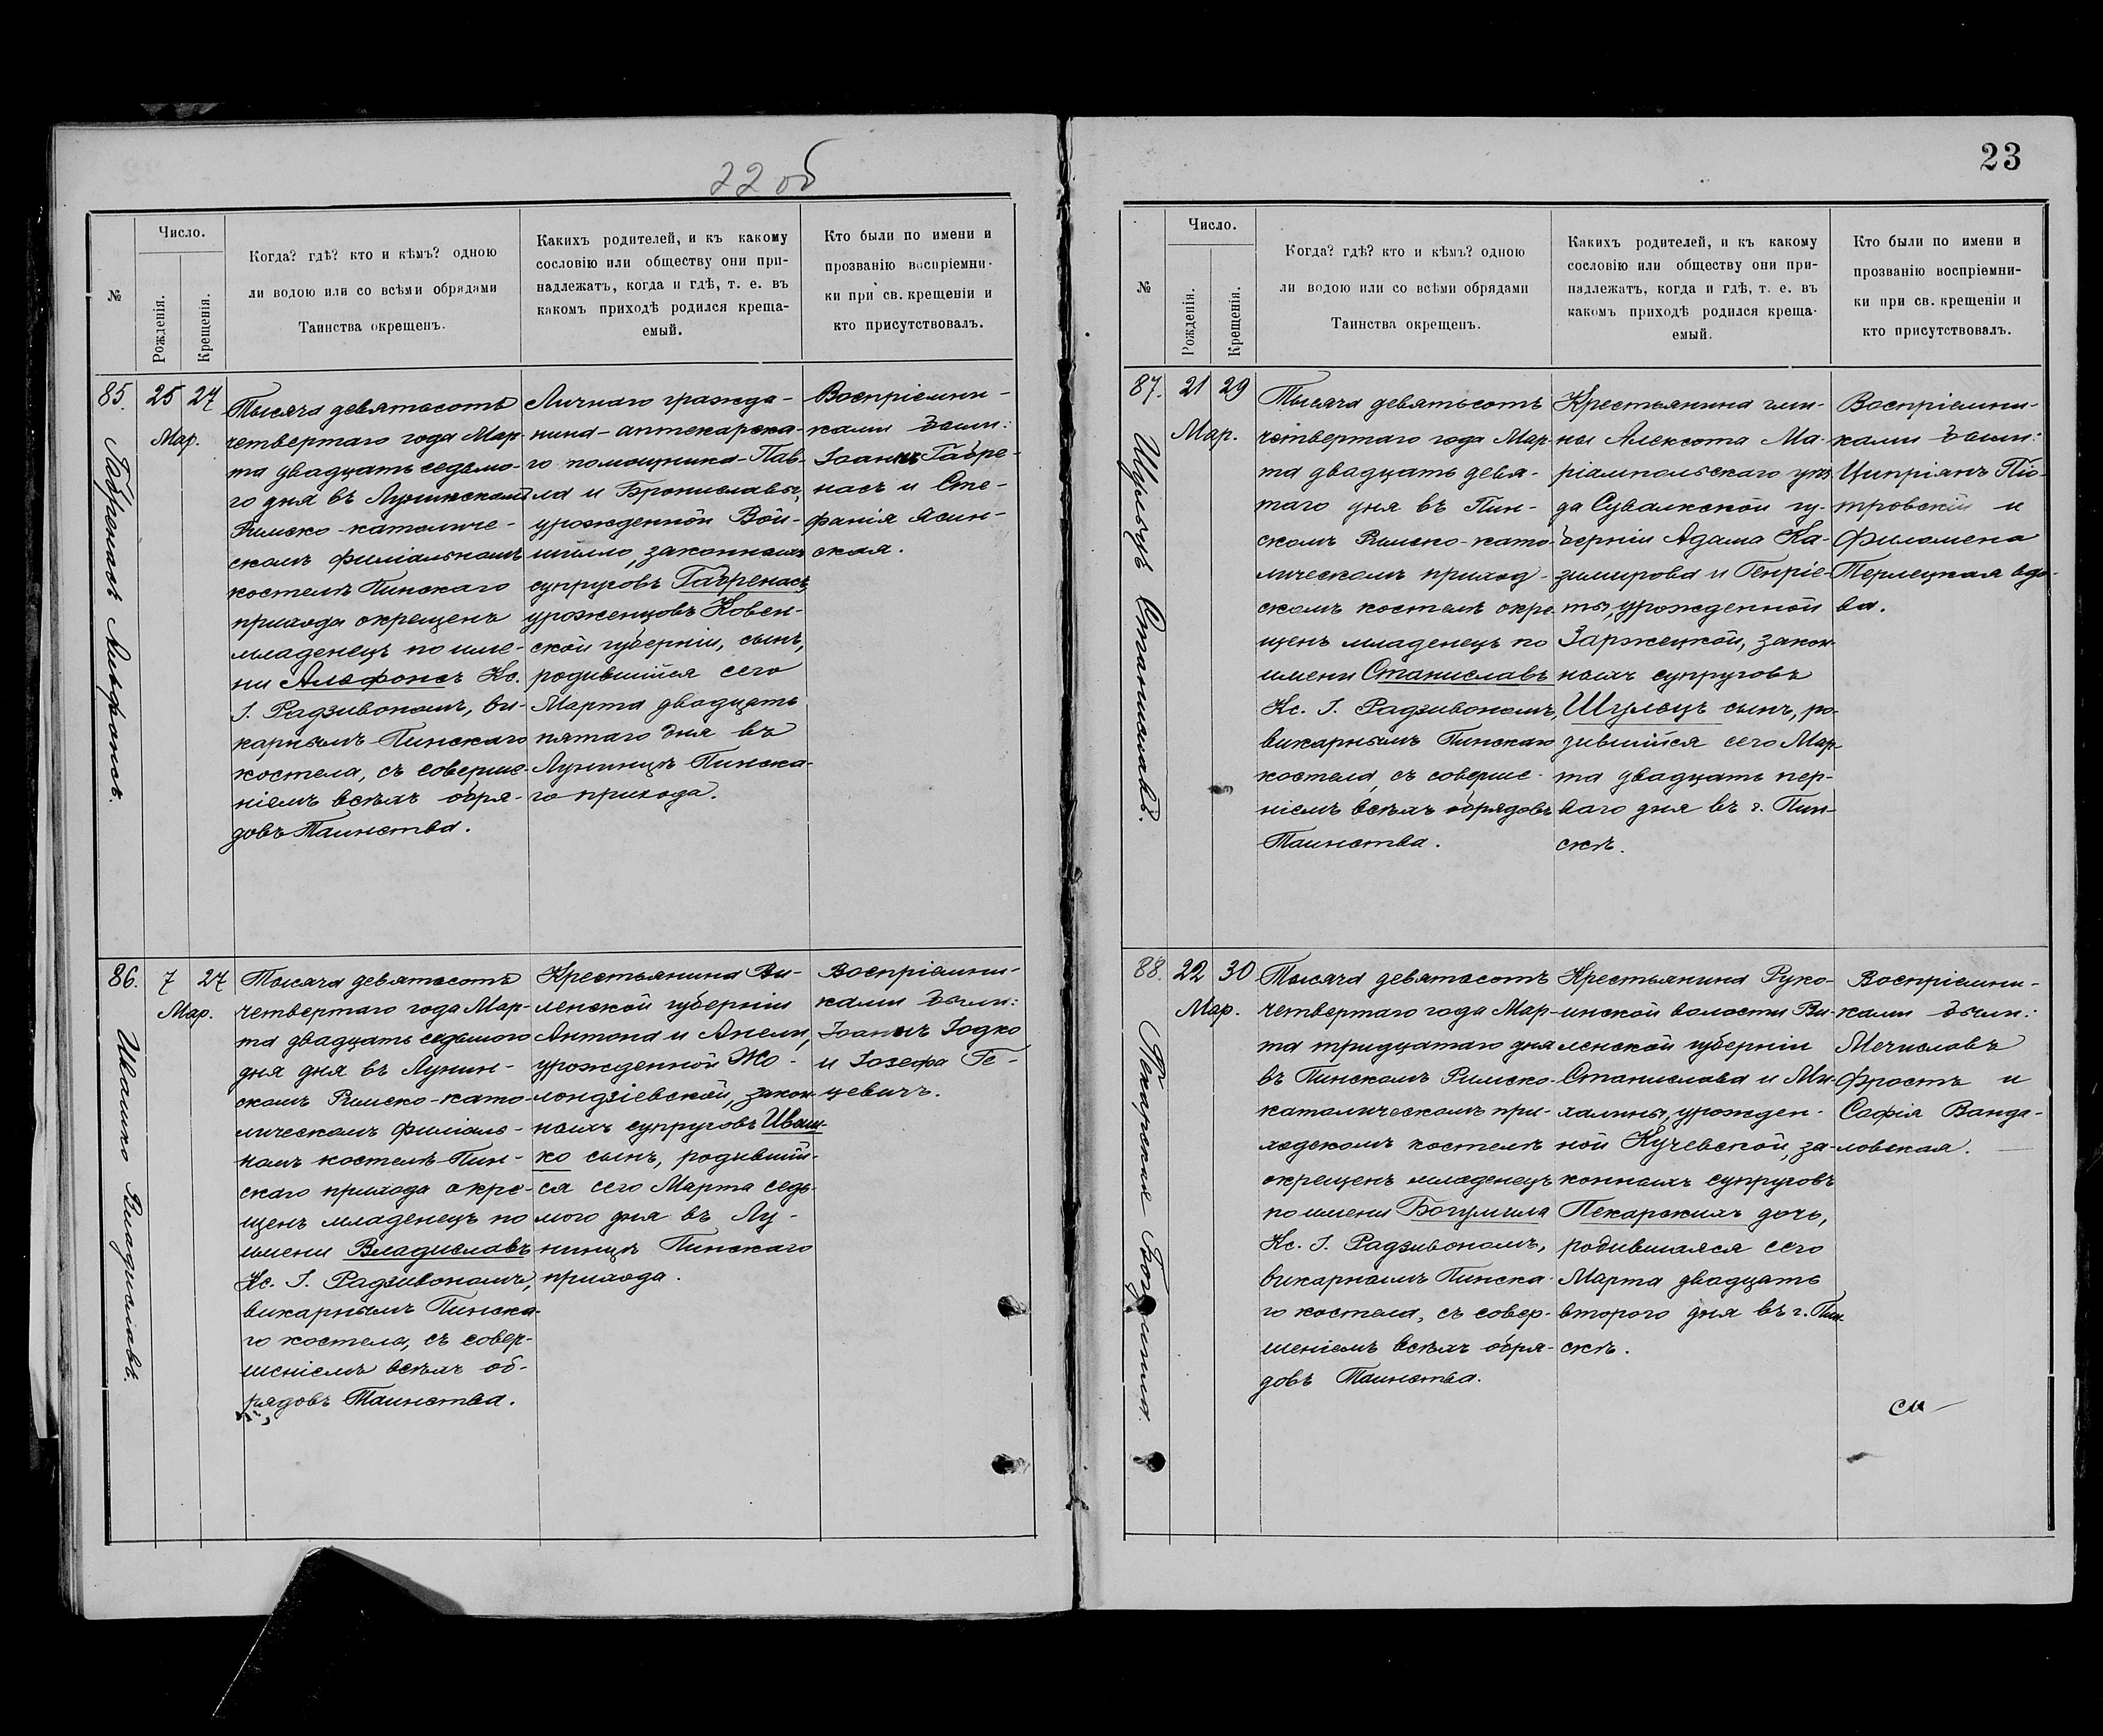 22 об
№
Число.
Рожденія.
Крещенія.
Когда? гдѣ? кто и кѣмъ? одною
ли водою или со всѣми обрядами
Таинства окрещенъ.
Какихъ родителей, и къ какому
сословію или обществу они при-
надлежатъ, когда и гдѣ, т. е. въ
какомъ приходѣ родился креща-
емый.
Кто были по имени и
прозванію воспріемни-
ки при св. крещеніи и
кто присутствовалъ.
85.
Габренасъ Альфонсъ.
25 27
Мар.
Тысяча девятьсотъ
четвертаго года Мар-
та двадцать седьмо-
го дня въ Лунинскомъ
Римско-католиче-
скомъ филіальномъ
костелѣ Пинскаго
прихода окрещенъ
младенецъ по име-
ни Альфонсъ Кс.
І. Радзивономъ, ви-
карнымъ Пинскаго
костела, съ соверше-
ніемъ всѣхъ обря-
довъ Таинства.
Личнаго гражда-
нина-аптекарска-
го помощника-Пав-
ла и Брониславы,
урожденной Вой-
шилло, законныхъ
супруговъ Габренасъ,
уроженцовъ Ковен-
ской губерніи, сынъ,
родившійся сего
Марта двадцать
пятаго дня въ
Лунинцѣ Пинска-
го прихода.
Воспріемни-
ками были:
Іоаннъ Габре-
насъ и Сте-
фанія Ясин-
ская.
86.
Ивашко Владиславъ.
7 27
Мар.
Тысяча девятьсотъ
четвертаго года Мар-
та двадцать седьмого
дня дня въ Лунин-
скомъ Римско-като-
лическомъ филіаль-
номъ костелѣ Пин-
скаго прихода окре-
щенъ младенецъ по
имени Владиславъ
Кс. І. Радзивономъ,
викарнымъ Пинска-
го костела, съ совер-
шеніемъ всѣхъ об-
рядовъ Таинства.
Крестьянина Ви-
ленской губерніи
Антона и Анели,
урожденной Жо-
лондзіевской, закон-
ныхъ супруговъ Иваш-
ко сынъ, родившій-
ся сего Марта седь-
мого дня въ Лу-
нинцѣ Пинскаго
прихода.
Воспріемни-
ками были:
Іоаннъ Іодко
и Іозефа Ге-
цевичъ.
23
№
Число.
Рожденія.
Крещенія.
Когда? гдѣ? кто и кѣмъ? одною
ли водою или со всѣми обрядами
Таинства окрещенъ.
Какихъ родителей, и къ какому
сословію или обществу они при-
надлежатъ, когда и гдѣ, т. е. въ
какомъ приходѣ родился креща-
емый.
Кто были по имени и
прозванію воспріемни-
ки при св. крещеніи и
кто присутствовалъ.
87.
Шульцъ Станиславъ.
21 29
Мар.
Тысяча девятьсотъ
четвертаго года Мар-
та двадцать девя-
таго дня въ Пин-
скомъ Римско-като-
лическомъ приход-
скомъ костелѣ окре-
щенъ младенецъ по
имени Станиславъ
Кс. І. Радзивономъ,
викарнымъ Пинскаго
костела, съ соверше-
ніемъ всѣхъ обрядовъ
Таинства.
Крестьянина гми-
ны Алексота Ма-
ріампольскаго уѣз-
да Сувалкской гу-
берніи Адама Ка-
зимирова и Генріе-
ты, урожденной
Заржецкой, закон-
ныхъ супруговъ
Шульцъ сынъ, ро-
дившійся сего Мар-
та двадцать пер-
ваго дня въ г. Пин-
скѣ.
Воспріемни-
ками были:
Ципріянъ Піо-
тровскій и
Филомена
Перлецкая вдо-
ва.
88.
Пекарская Богумила
22 30
Мар.
Тысяча девятьсотъ
четвертаго года Мар-
та тридцатаго дня
въ Пинскомъ Римско-
католическомъ при-
ходскомъ костелѣ
окрещенъ младенецъ
по имени Богумила
Кс. І. Радзивономъ,
викарнымъ Пинска-
го костела, съ совер-
шеніемъ всѣхъ обря-
довъ Таинства.
Крестьянина Руко-
инской волости Ви-
ленской губерніи
Станислава и Ми-
халины, урожден-
ной Кучевской, за-
конныхъ супруговъ
Пекарскихъ дочь,
родившаяся сего
Марта двадцать
второго дня въ г. Пин-
скѣ.
Воспріемни-
ками были:
Мечиславъ
Фростъ и
Софія Ванда-
ловская.